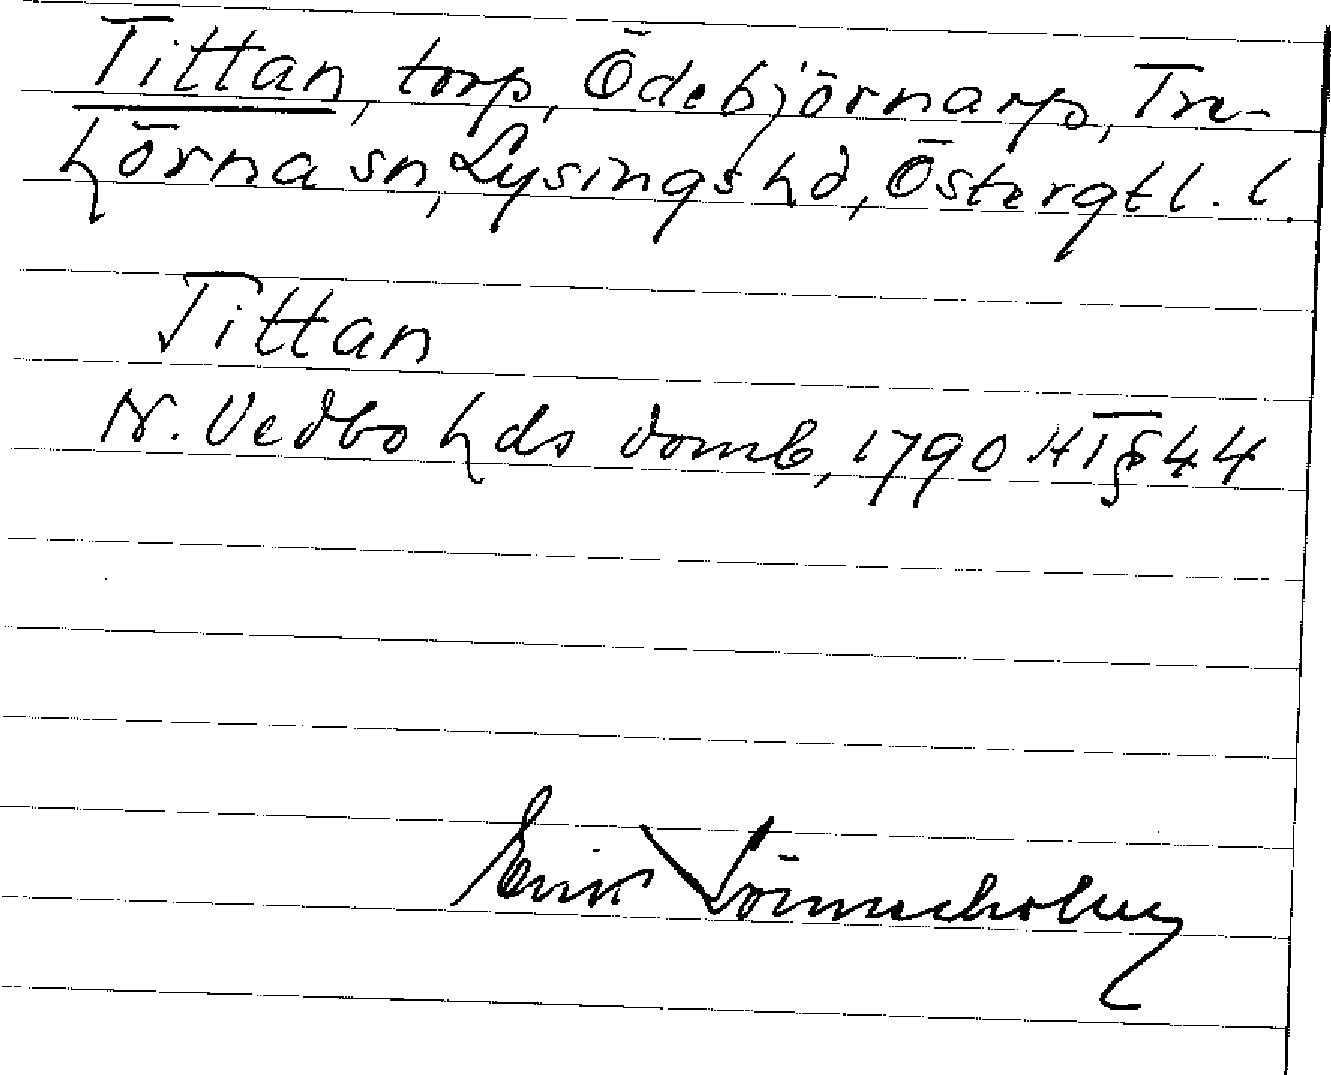 Tittan, torp, Ödebjörnarp, Tre-
hörna sn, Lysings hd, Östergtl. l.
Tittan
N. Vedbo hds domb, 1790 HT § 44
Erik Lönnerholm